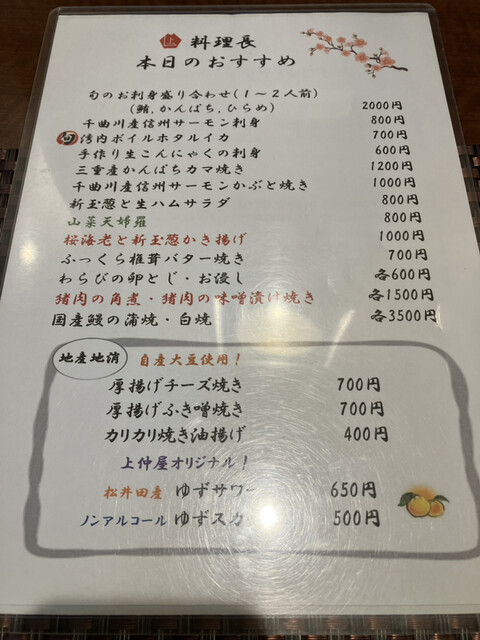 料理長
本日のおすすめ
旬のお刺身盛り合わせ(1~2人前)
(鮪,かんぱち,ひらめ) 2000円
千曲川産信州サーモン刺身 800円
旬 湾内ボイルホタルイカ 700円
手作り生こんにゃくの刺身 600円
三重産かんぱちカマ焼き 1200円
千曲川産信州サーモンかぶと焼き 1000円
新玉葱と生ハムサラダ 800円
山菜天婦羅 800円
桜海老と新玉葱かき揚げ 1000円
ふっくら椎茸バター焼き 700円
わらびの卵とじ・お浸し 各600円
猪肉の角煮・猪肉の味噌漬け焼き 各1500円
国産鰻の蒲焼・白焼 各3500円
地産地消 自産大豆使用!
厚揚げチーズ焼き 700円
厚揚げふき噌焼き 700円
カリカリ焼き油揚げ 400円
上仲屋オリジナル!
松井田産 ゆずサワー 650円
ノンアルコール ゆずスカ 500円